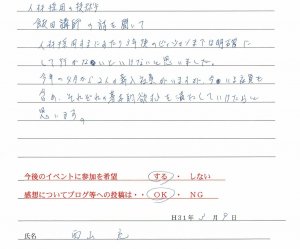 人材採用の技術
飯田講師の話を聞いて
人材採用するにあたり3年後のビジョンまでは明確に
して行かないといけないと思いました。
今年の4月から2人の新入社員がいますが、今いる社員も
含め、それぞれの基本的欲求を満たしていけたらと
思います。
今後のイベントに参加を希望 する ・ しない
感想についてブログ等への投稿は・・ OK ・ NG
H31年 月 9日
氏名 西山